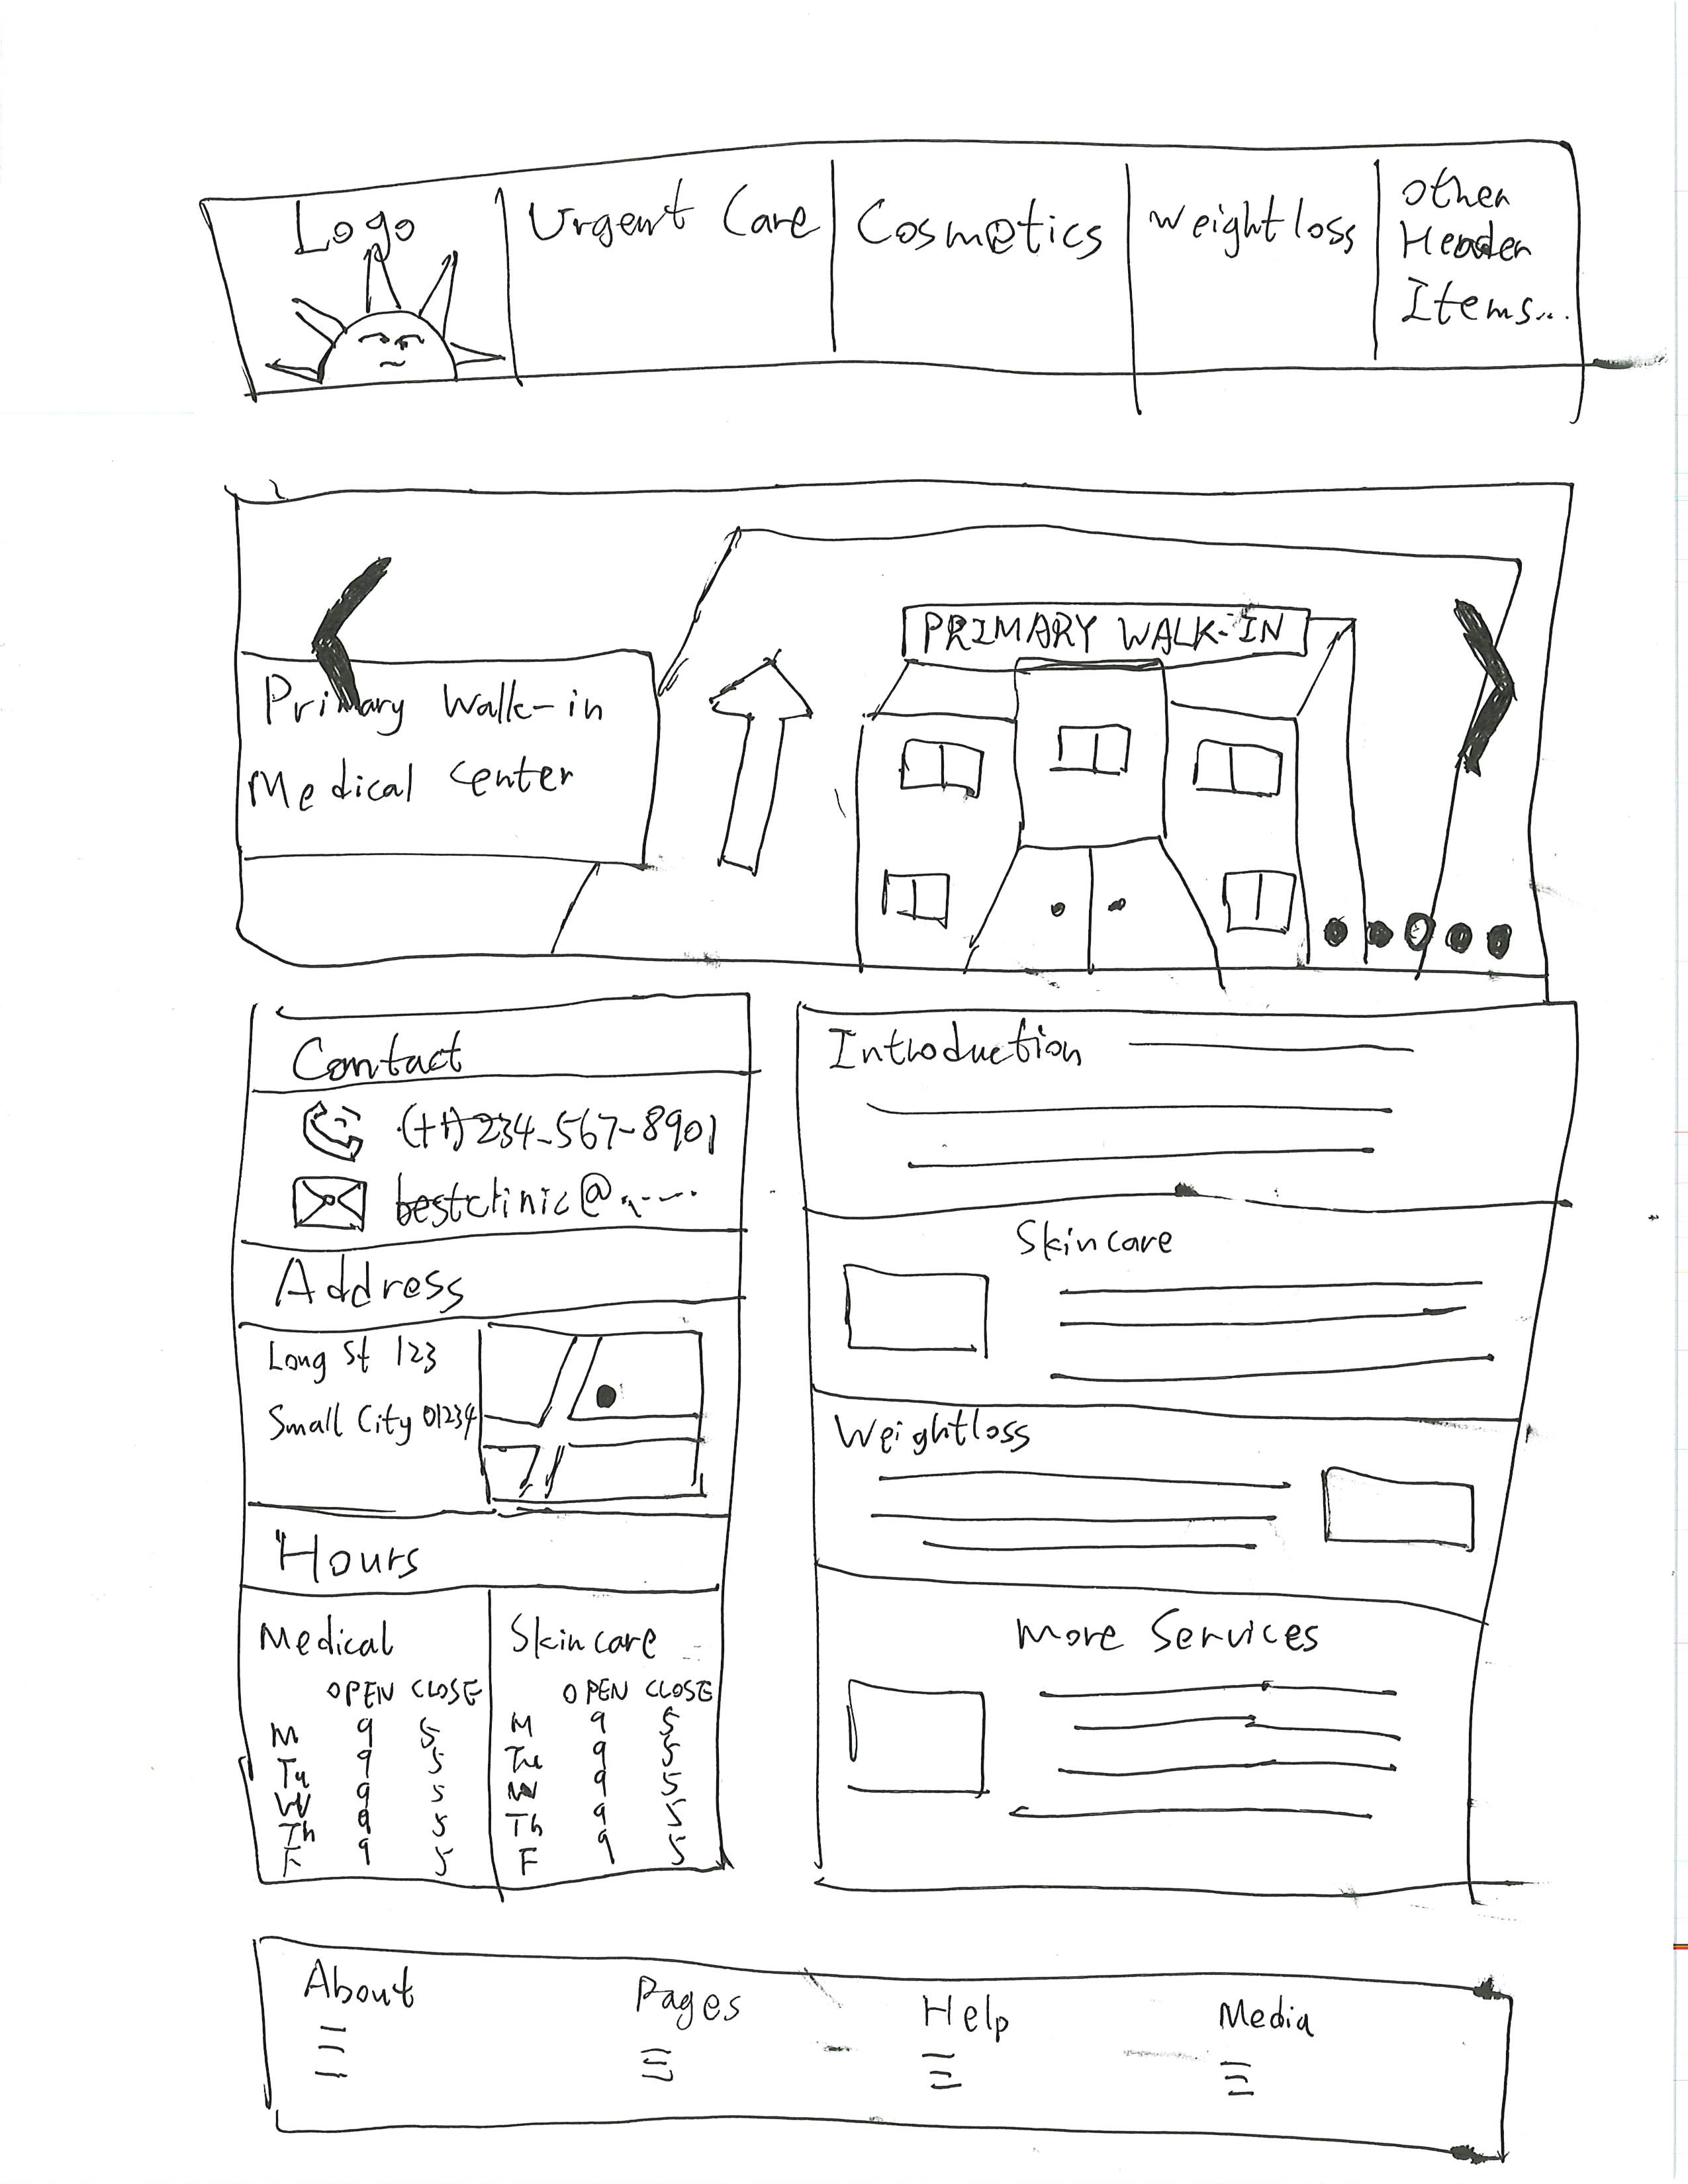 Logo
Urgent Care
Cosmetics
Weightloss
Other
Header
Items...
PRIMARY WALK-IN
Primary Walk-in
Medical Center
Contact
(+1)234-567-8901
bestclinic@......
Address
Long St 123
Small City 01234
Hours
Medical
OPEN CLOSE
M 9 5
Tu 9 5
W 9 5
Th 9 5
F 9 5
Skincare
OPEN CLOSE
M 9 5
Tu 9 5
W 9 5
Th 9 5
F 9 5
Introduction
Skincare
Weightloss
More Services
About
Pages
Help
Media